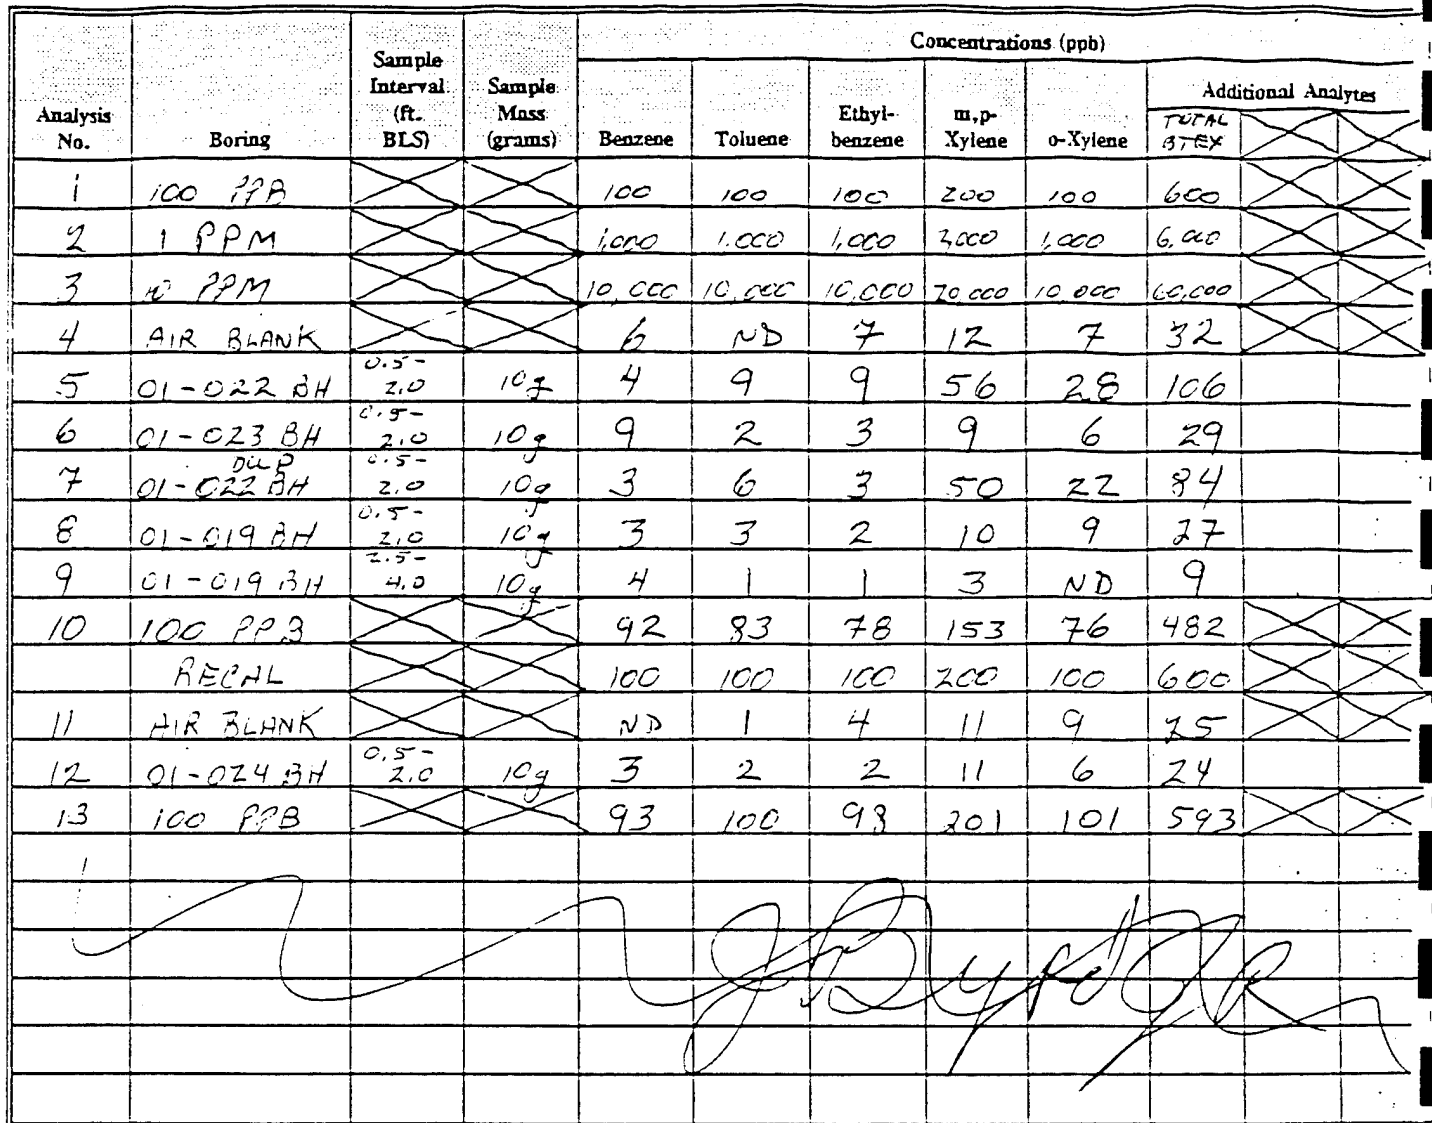 Concentrations (ppb)
Additional Analytes
Analysis No. Boring Sample Interval (ft. BLS) Sample Mass (grams) Benzene Toluene Ethyl-benzene m,p-Xylene o-Xylene TOTAL BTEX
1 100 PPB 100 100 100 200 100 600
2 1 PPM 1,000 1,000 1,000 2,000 1,000 6,000
3 10 PPM 10,000 10,000 10,000 20,000 10,000 60,000
4 AIR BLANK 6 ND 7 12 7 32
5 01-022 BH 0.5-2.0 10g 4 9 9 56 28 106
6 01-023 BH 0.5-2.0 10g 9 2 3 9 6 29
7 01-022 BH DUP 0.5-2.0 10g 3 6 3 50 22 84
8 01-019 BH 0.5-2.0 10g 3 3 2 10 9 27
9 01-019 BH 2.5-4.0 10g 4 1 1 3 ND 9
10 100 PPB 92 83 78 153 76 482
RECAL 100 100 100 200 100 600
11 AIR BLANK ND 1 4 11 9 25
12 01-024 BH 0.5-2.0 10g 3 2 2 11 6 24
13 100 PPB 93 100 98 201 101 593
J. Byrd JR